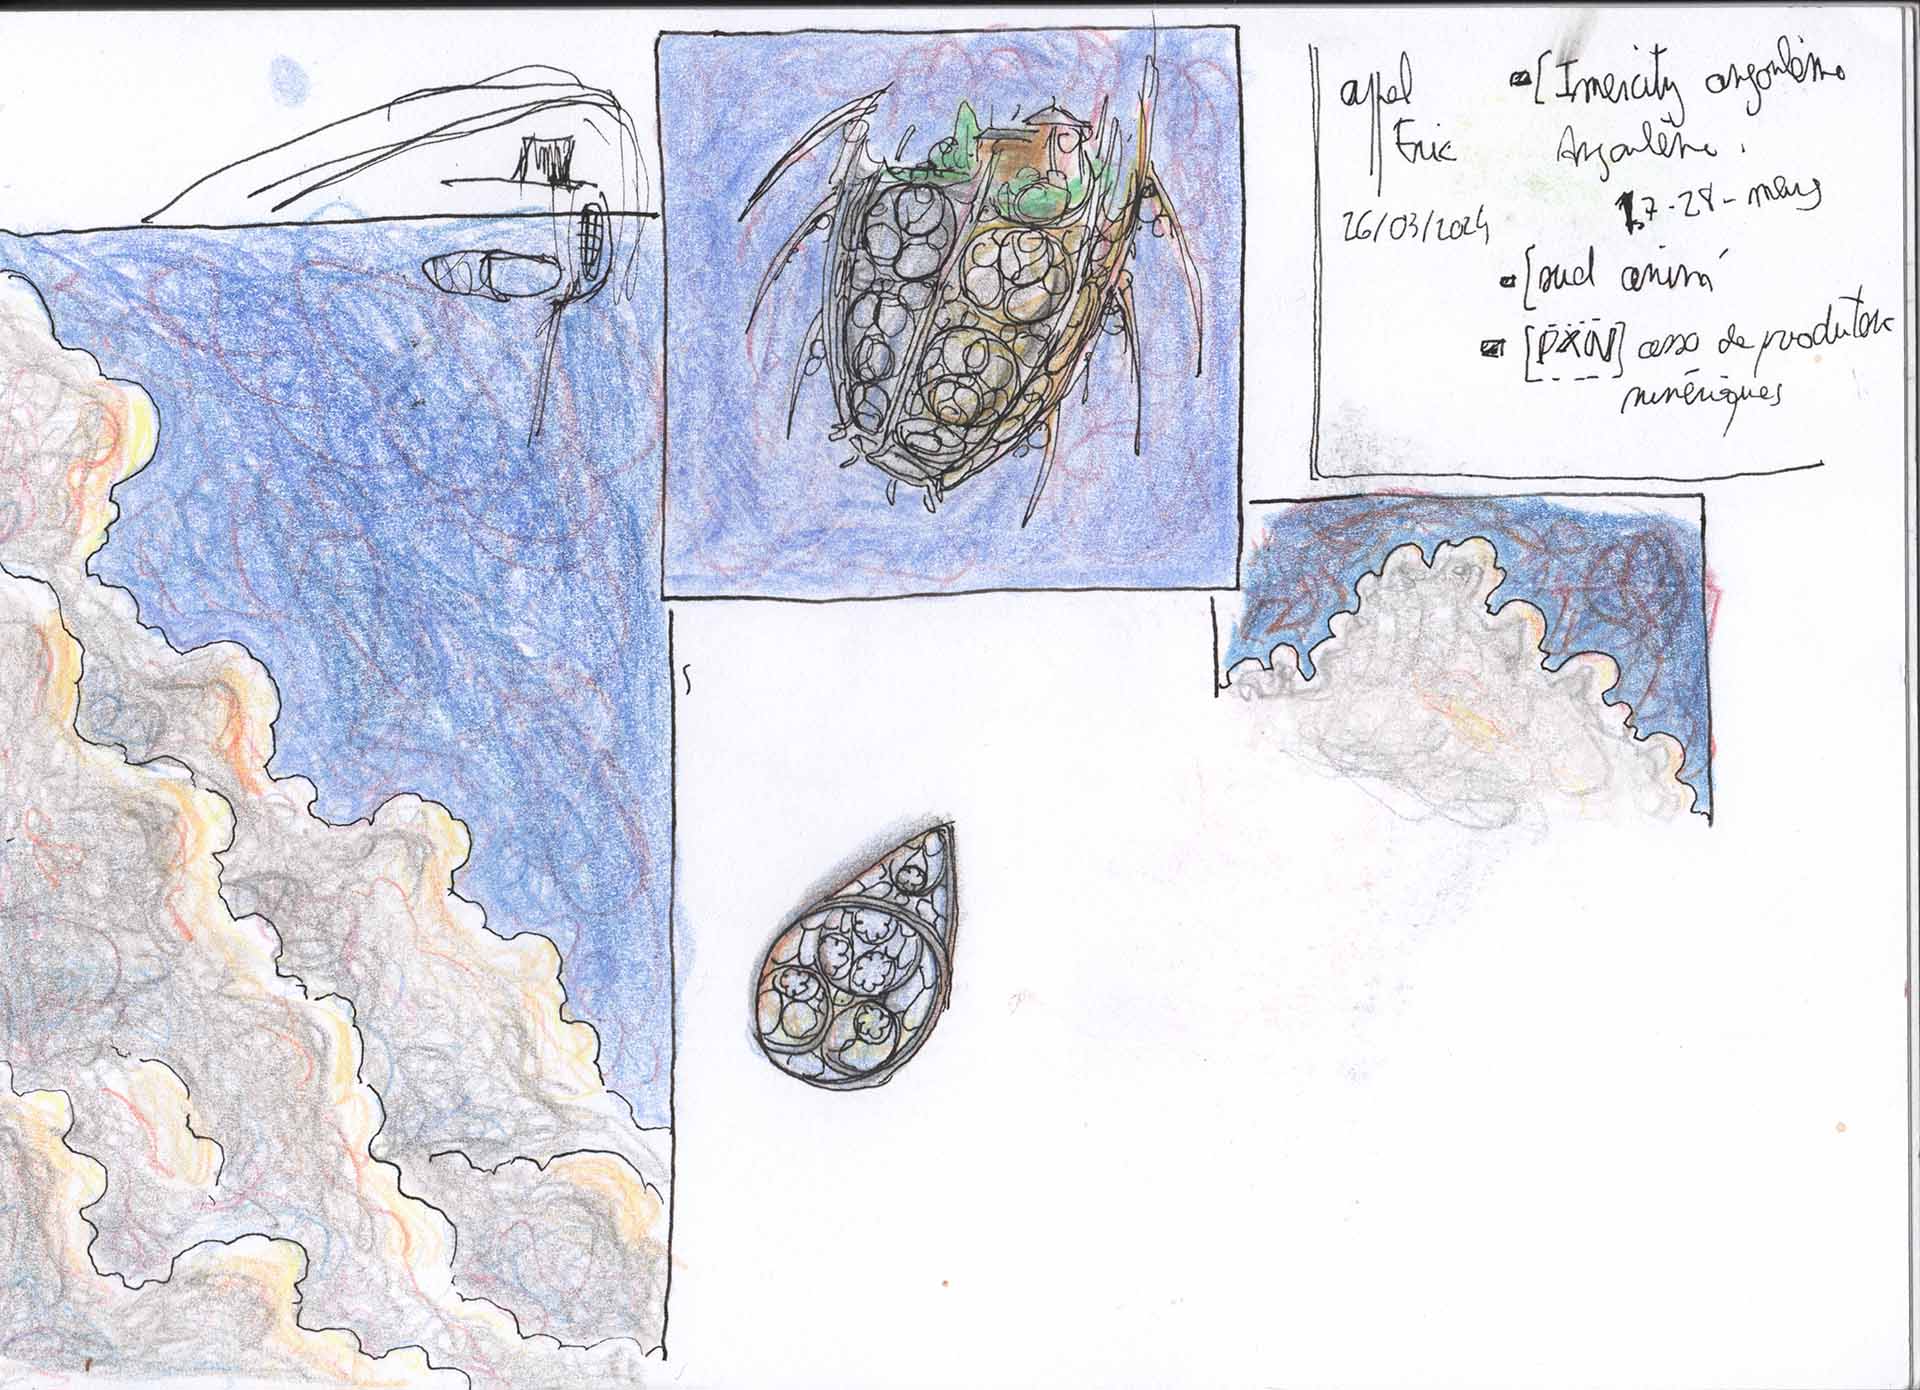 appel
Eric
26/03/2024
[Imersity angoulême
Angoulême.
27-28-mars
[sud animé
[PXN] asso de producteur
numériques